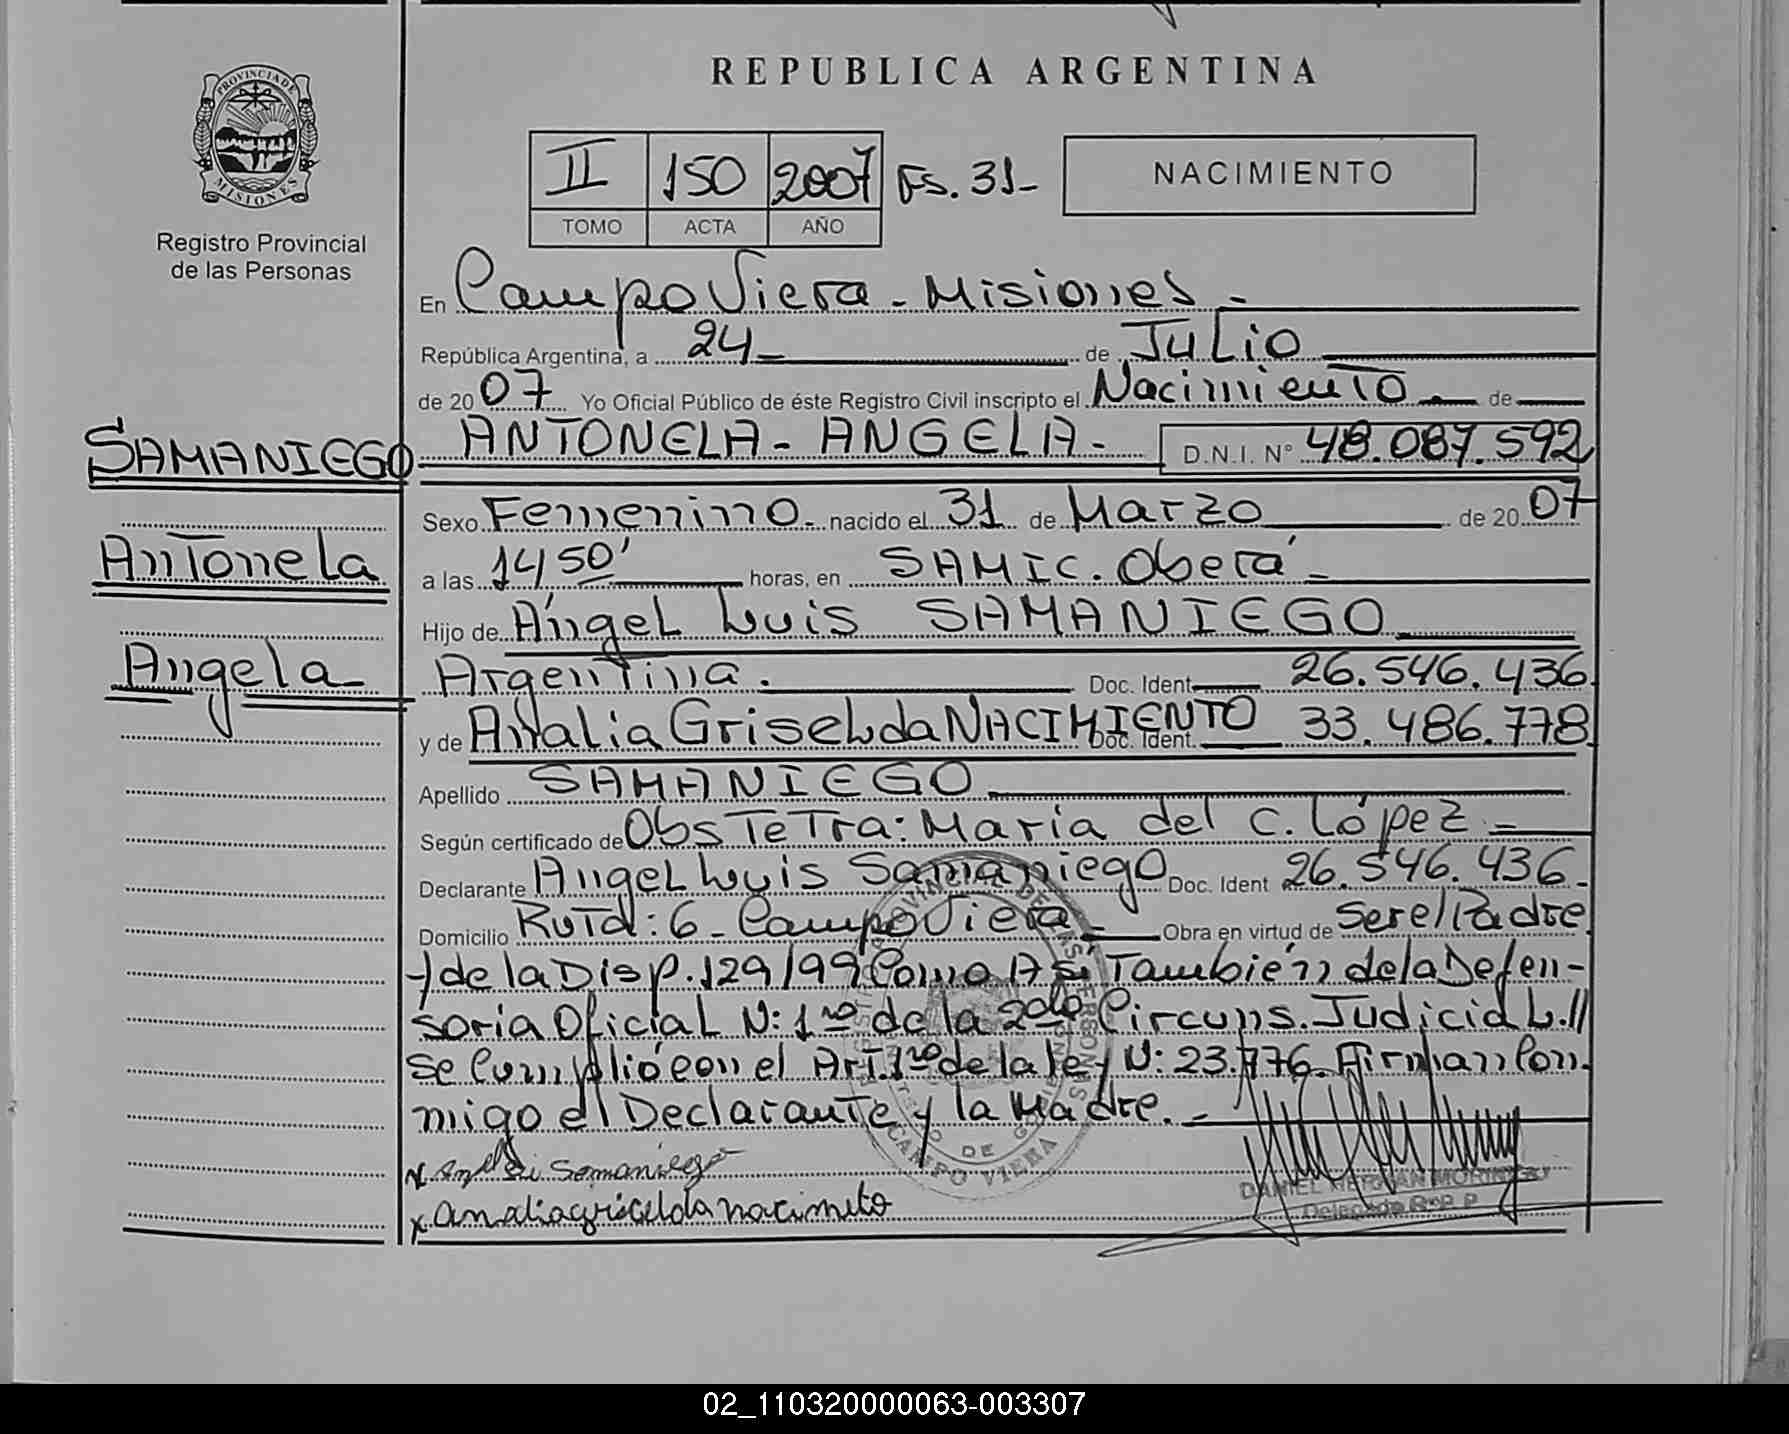 REPUBLICA ARGENTINA
PROVINCIA DE
MISIONES
Registro Provincial
de las Personas
II 150 2007 Fs. 31-
TOMO ACTA AÑO
NACIMIENTO
En Campo Viera - Misiones -
República Argentina, a 24 de Julio
de 2007 Yo Oficial Público de éste Registro Civil inscripto el Nacimiento de
SAMANIEGO
ANTONELA - ANGELA - D.N.I. N° 48.087.592
Sexo Femenino. nacido el 31 de Marzo de 2007
Antonela
a las 14/50' horas, en SAMIC. Oberá -
Hijo de Angel Luis SAMANIEGO
Angela
Argentina. Doc. Ident 26.546.436.
y de Analia Griselda NACIMIENTO Doc. Ident. 33.486.778
Apellido SAMANIEGO
Según certificado de Obstetra: Maria del C. López -
Declarante Angel Luis Samaniego Doc. Ident 26.546.436.
Domicilio Ruta: 6 - Campo Viera - Obra en virtud de Ser el Padre
y de la Disp. 129/99 Como Asi También de la Defen-
soria Oficial N: 1ro de la 2da Circuns. Judicial.//
se Cumplió con el Art. 1ro de la ley N: 23.776. Firman Con
migo el Declarante y la Madre. -
Samaniego
x Analia gricelda nacimeto
CAMPO VIERA
Delegado R.P.P
02_110320000063-003307